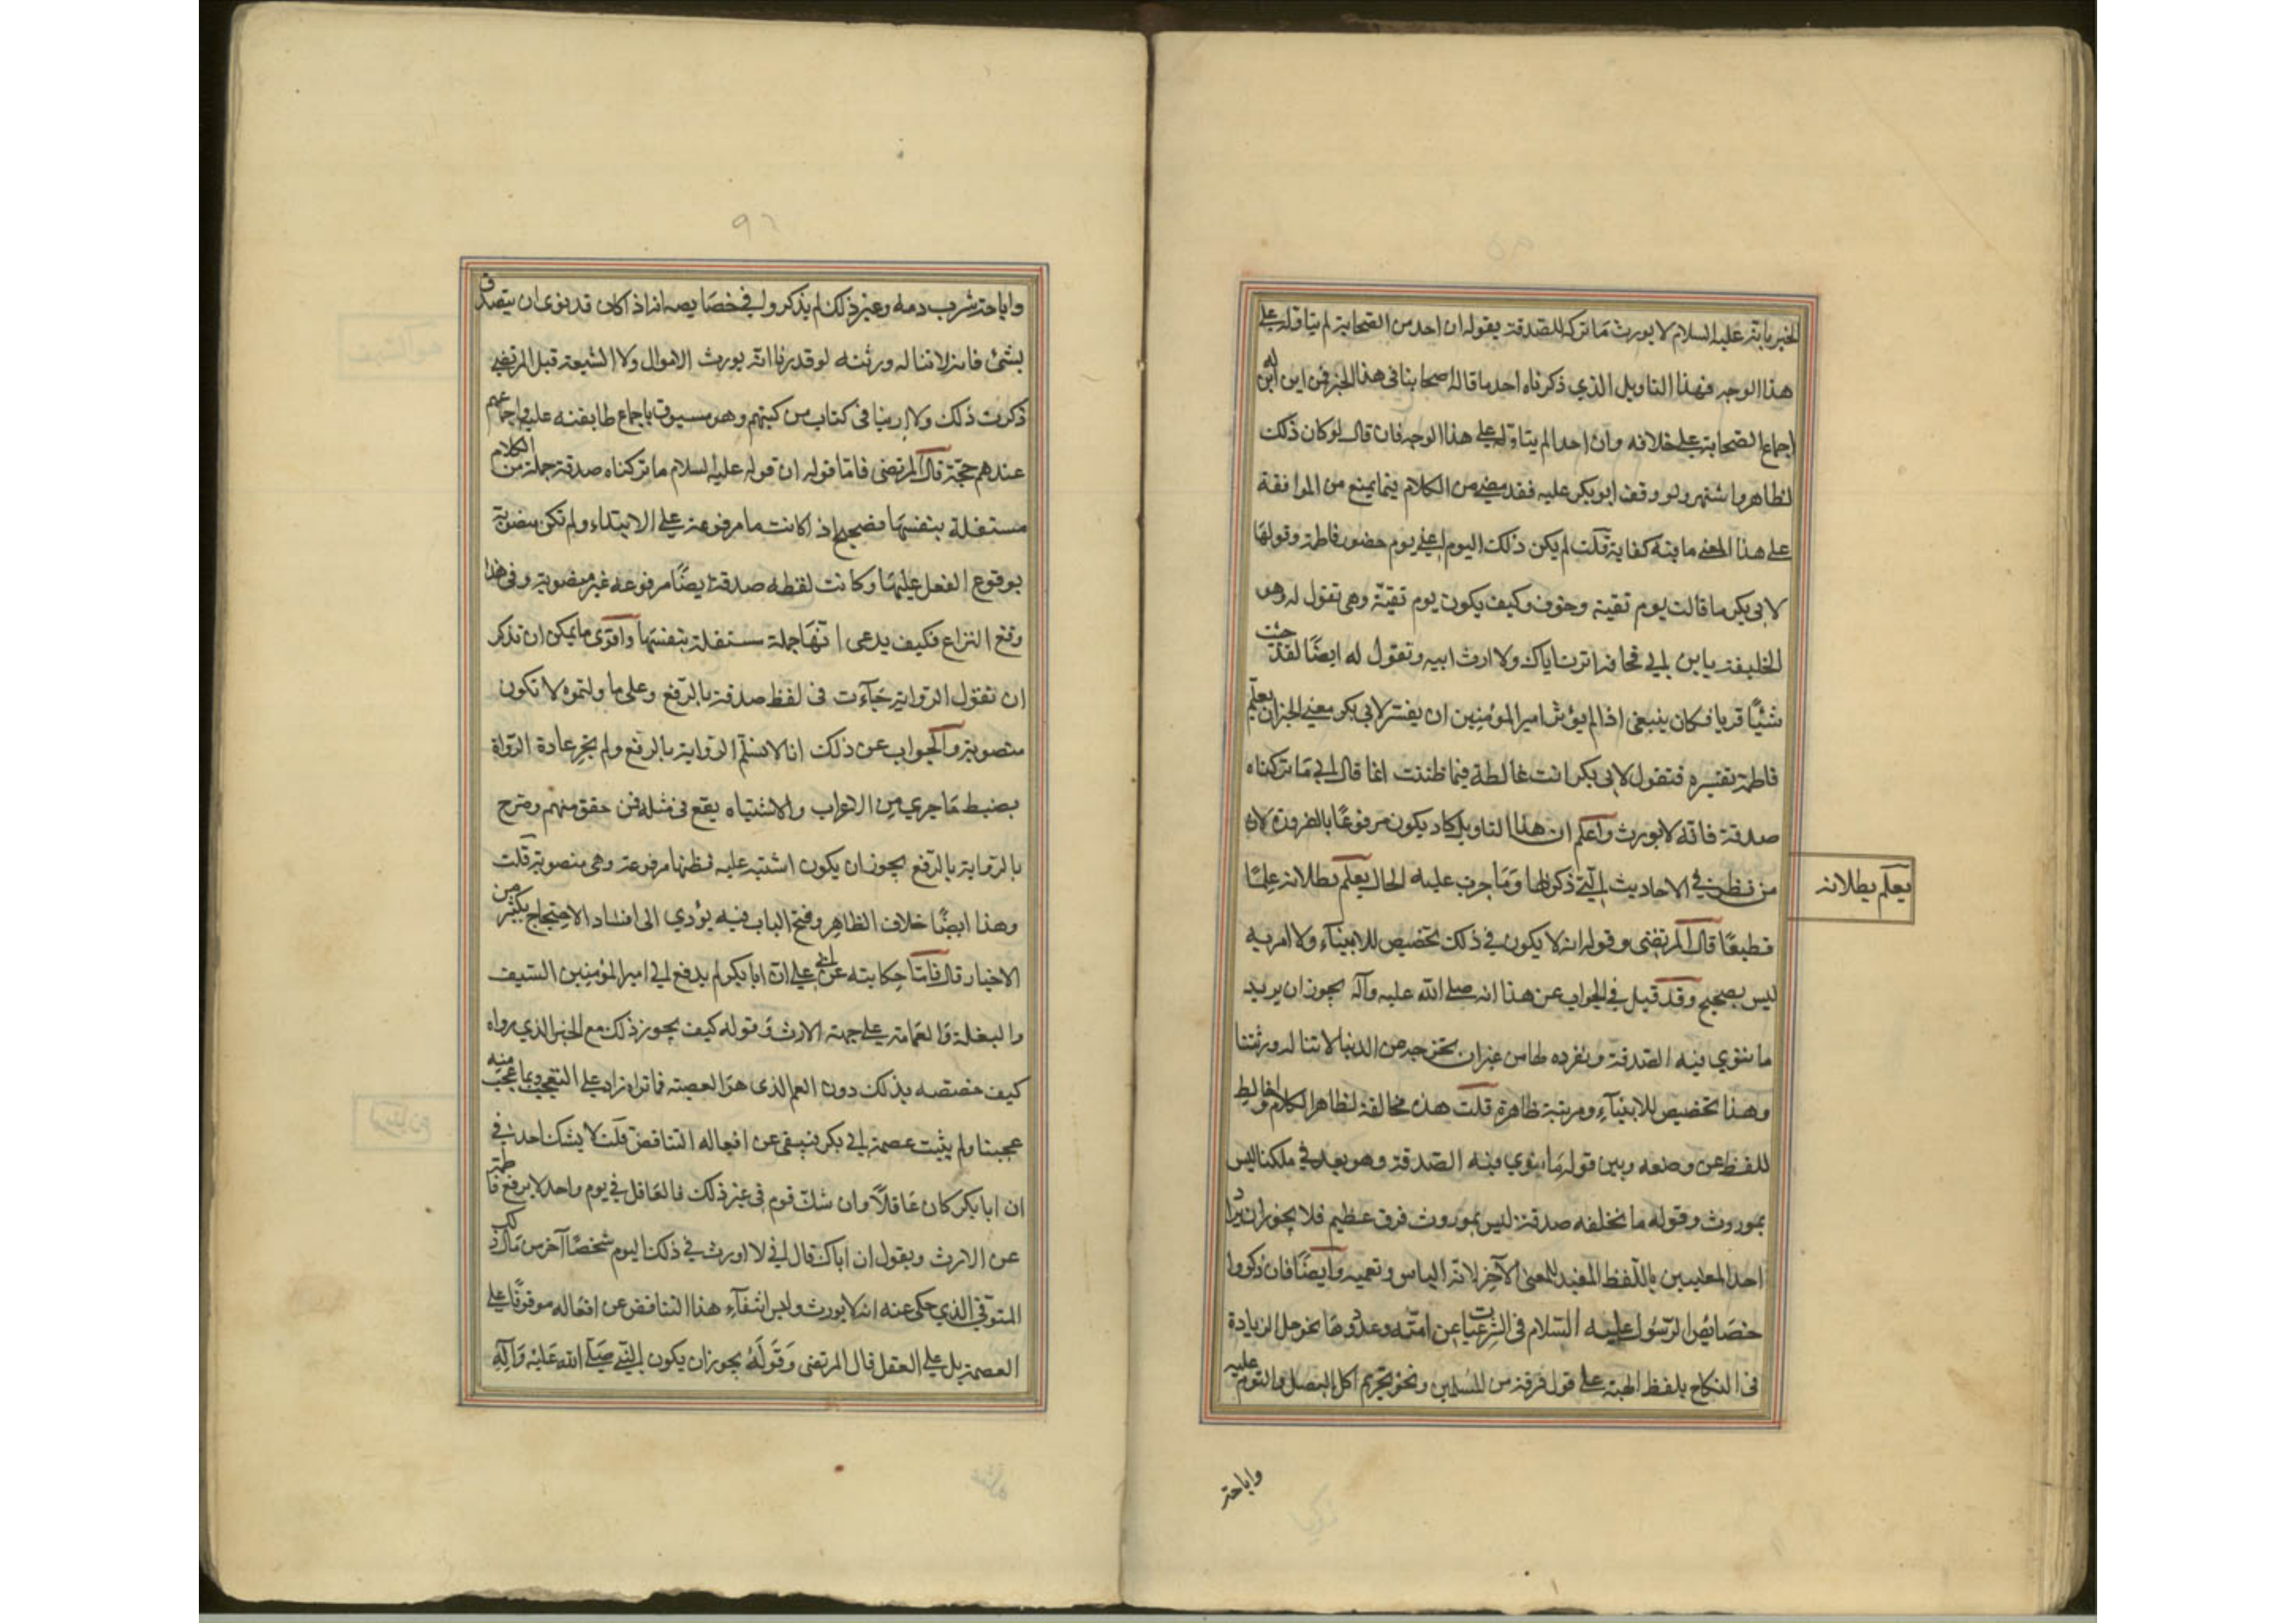 الخبر بانه عليه السلام لا يورث ما تركه للصدقة بقوله ان احد من الصحابة لم يتاوله على
هذا الوجه فهذا التاويل الذي ذكرناه احد ما قاله اصحابنا فى هذا الخبر فمن اين له
اجماع الصحابة على خلافه وان احدا لم يتاوله على هذا الوجه فان قال لو كان ذلك
لظاهر واشتهر ولو وقف ابو بكر عليه فقد مضى من الكلام فيما يمنع من الموافقة
على هذا المعنى ما فيه كفاية قلت لم يكن ذلك اليوم اعنى يوم حضور فاطمة وقولها
لابى بكر ما قالت يوم تقية وخوف وكيف يكون يوم تقيّة وهى تقول له وهو
الخليفة يا بن ابى قحافة اترث اباك ولا ارث ابيه وتقول له ايضًا لقد جئت
شيئًا فريا فكان ينبغى اذا لم يؤثر امير المؤمنين ان يفسر لابى بكر معنى الخبر ان يعلم
فاطمة تفسيره فتقول لابى بكر انت غالطة فيما ظننت انما قال ابى ما تركناه
صدقة فانه لا يورث واعلم ان هذا التاويل كاد يكون مرفوعًا بالضرورة لان
من نظر في الاحاديث التى ذكرناها وما جرت عليه الحال يعلم بطلانه علمًا
يعلم بطلانه
قطيعًا قال المرتضى وقوله انه لا يكون في ذلك تخصيص للانبيآء ولا مزية
ليس بصحيح وقد قيل في الجواب عن هذا انه صلى الله عليه وآله يجوز ان يريد
ما ننوي فيه الصدقة ونفرده لها من غير ان نخرجه من الدنيا لا تناله ورثتنا
وهذا تخصيص للانبيآء ومزية ظاهرة قلت هذه مخالفة لظاهر الكلام واحالة
للفظ عن وضعه وبين قوله ما ننوي فيه الصدقة وهو بعد في ملكنا ليس
بموروث وقوله ما نخلفه صدقة ليس بموروث فرق عظيم فلا يجوز ان يراد
احد المعنيين باللفظ المفيد للمعنى الآخر لانه الباس وتعمية وايضًا فان ذكروا
خصائص الرسول عليه السلام فى الشرعيات عن امته وعدّوها نحو حل الزيادة
فى النكاح بلفظ الهبة على قول فرقة من المسلمين ونحو تحريم اكل البصل والثوم عليه
واباحة
واباحة شرب دمه وغير ذلك لم يذكروا في خصايصه انه اذا كان قد نوى ان يتصدق
بشئ فانه لا تناله ورثته لو قدرنا انه يورث الاموال ولا الشيعة قبل المرتضى
ذكرت ذلك ولا راينا فى كتاب من كتبهم وهو مسبوق باجماع طايفته عليه واجماعهم
عندهم حجّة قال المرتضى فامّا قوله ان قوله عليه السلام ما تركناه صدقة جملة من الكلام
مستقلة بنفسها فصحيح اذ كانت ما مرفوعة على الابتداء ولم تكن منصوبة
بوقوع الفعل عليها وكانت لفظه صدقة ايضًا مرفوعه غير منصوبة وفى هذا
وقع النزاع فكيف يدعى انها جملة مستقلة بنفسها واقوى ما يمكن ان نذكر
ان نقول الرواية جآءت فى لفظ صدقة بالرّفع وعلى ما ولتموه لا تكون
منصوبة والجواب عن ذلك انا لا نسلم الرواية بالرفع ولم تجر عادة الرواة
بضبط ما جرى من الاعراب والاشتباه يقع فى مثله فمن حقق منهم وصرح
بالرواية بالرفع يجوز ان يكون اشتبه عليه فظنها مرفوعة وهى منصوبة قلت
وهذا ايضًا خلاف الظاهر وفتح الباب فيه يؤدي الى افساد الاحتجاج بكثير من
الاخبار قال فامّا حكايته عن ابى على ان ابا بكر لم يدفع الى امير المؤمنين السيف
والبغلة والعمامة على جهة الارث وقوله كيف يجوز ذلك مع الخبر الذي رواه
كيف خصصه بذلك دون العم الذى هو العصبة فما تراه زاد على التعجب ومما عجب منه
عجبنا ولم يثبت عصمة ابى بكر فينتفى عن افعاله التناقض قلت لا يشك احد فى
ان ابا بكر كان عاقلًا وان شك قوم فى غير ذلك فالعاقل في يوم واحد لا يدفع فاطمة
عن الارث ويقول ان اباك قال لى لا اورث فى ذلك اليوم شخصًا آخر من مال ذلك
المتوفى الذي حكى عنه انه لا يورث وليس انتفآء هذا التناقض عن افعاله موقوفًا على
العصمة بل على العقل قال المرتضى وقوله يجوز ان يكون النبى صلى الله عليه وآله